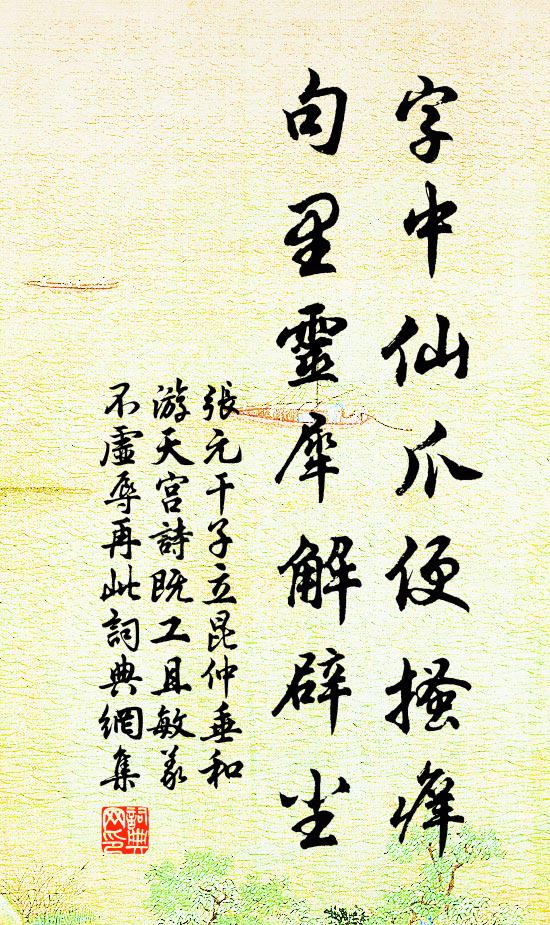 字中仙爪便搔痒
句里靈犀解辟尘
張元干子立昆仲垂和
游天宫詩既工且敏義
不虛辱再此詞典網集
詞典网印